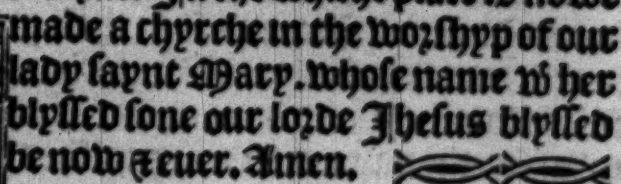 made a chyrche in the worshyp of our
lady saynt Mary. whose name w̄ her
blyssed sone our lorde Jhesus blyssed
be now & euer. Amen.